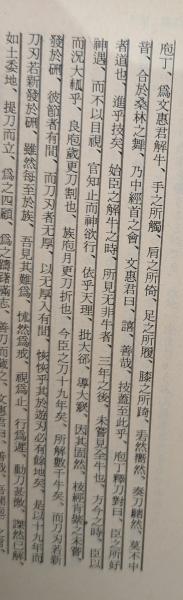 庖丁、爲文惠君解牛、手之所觸、肩之所倚、足之所履、膝之所踦、砉然嚮然、奏刀騞然、莫不中
音、合於桑林之舞、乃中經首之會、文惠君曰、譆、善哉、技蓋至此乎、庖丁釋刀對曰、臣之所好
者道也、進乎技矣、始臣之解牛之時、所見无非牛者、三年之後、未嘗見全牛也、方今之時、臣以
神遇、而不以目視、官知止而神欲行、依乎天理、批大郤、導大窾、因其固然、技經肯綮之未嘗、
而況大軱乎、良庖歲更刀割也、族庖月更刀折也、今臣之刀十九年矣、所解數千牛矣、而刀刃若新
發於硎、彼節者有閒、而刀刃者无厚、以无厚入有閒、恢恢乎其於遊刃必有餘地矣、是以十九年而
刀刃若新發於硎、雖然每至於族、吾見其難爲、怵然爲戒、視爲止、行爲遲、動刀甚微、謋然已解、
如土委地、提刀而立、爲之四顧、爲之躊躇滿志、善刀而藏之、文惠君曰、善哉、